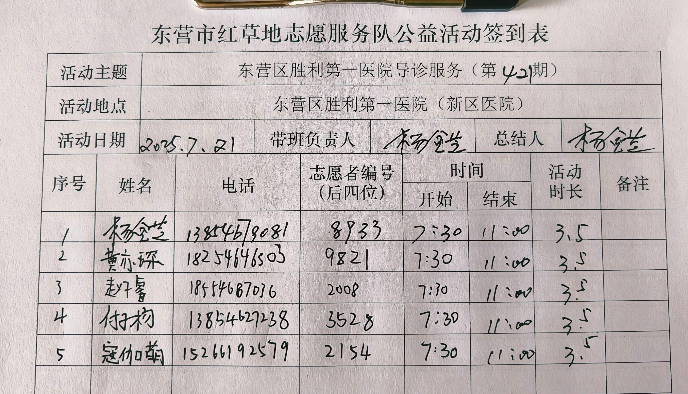 东营市红草地志愿服务队公益活动签到表
活动主题 东营区胜利第一医院导诊服务（第421期）
活动地点 东营区胜利第一医院（新区医院）
活动日期 2025.7.21 带班负责人 杨金芝 总结人 杨金芝
序号 姓名 电话 志愿者编号（后四位） 时间 开始 结束 活动时长 备注
1 杨金芝 13854673081 8933 7:30 11:00 3.5
2 黄亦琛 18254646503 9821 7:30 11:00 3.5
3 18554687036 2008 7:30 11:00 3.5
4 13854627238 3528 7:30 11:00 3.5
5 寇伽萌 15266192579 2154 7:30 11:00 3.5